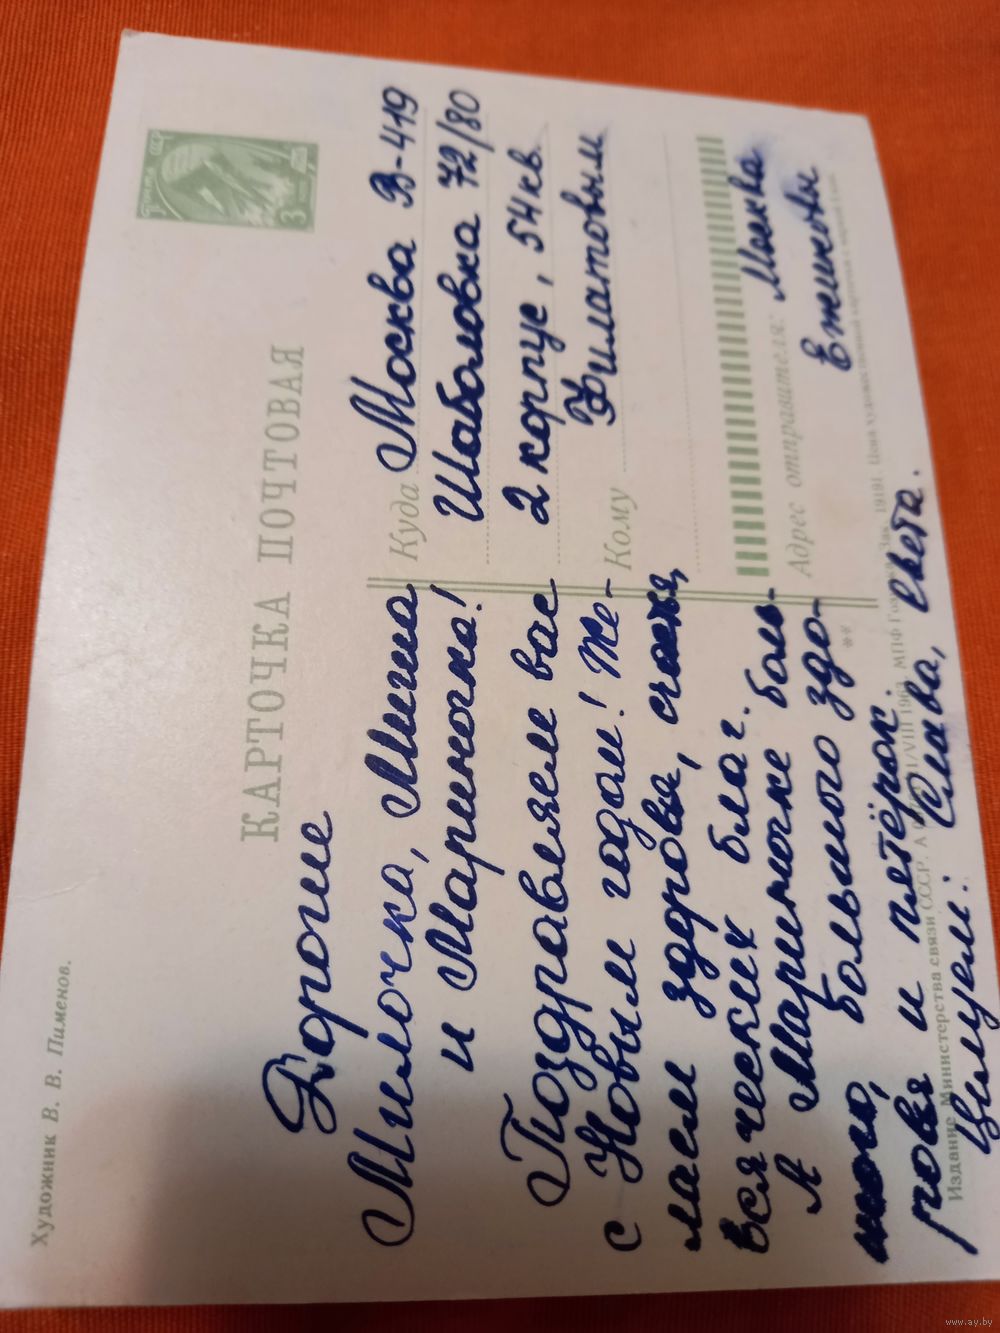 Художник В. В. Пименов.
КАРТОЧКА ПОЧТОВАЯ
Дорогие
Милочка, Миша
и Мариночка!
Поздравляем вас
с Новым годом! Же-
лаем здоровья, счастья,
всяческих благ.
А Мариночке боль-
шого, большого здо-
ровья и пятёрок.
Целуем: Слава, Света.
Почта СССР
3
Куда Москва В-419
Шаболовка 72/80
2 корпус, 54 кв.
Кому Филатовым
Адрес отправителя: Москва
Ежиковы
**
Издание Министерства связи СССР. 1/VIII 1963. МПФ Зак. 19191. Цена художественной карточки с маркой 4 коп.
www.ay.by